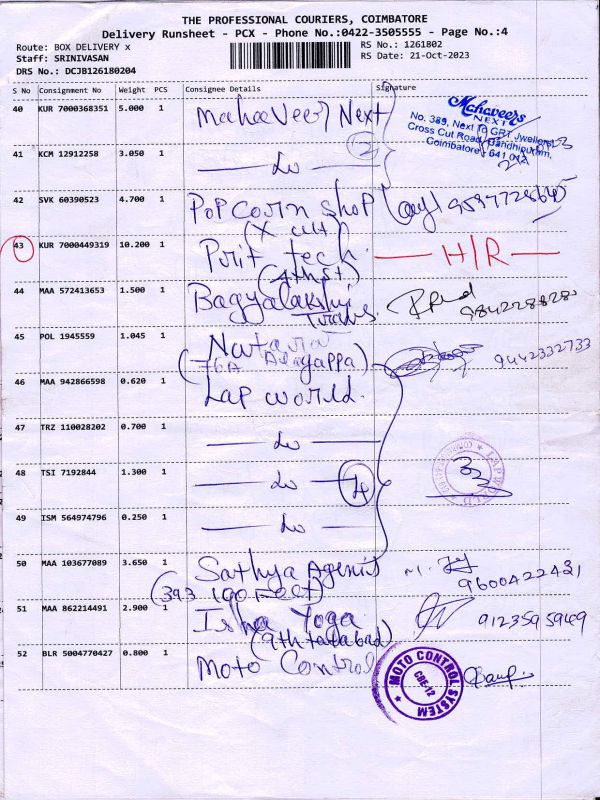 THE PROFESSIONAL COURIERS, COIMBATORE
Delivery Runsheet - PCX - Phone No.:0422-3505555 - Page No.:4
Route: BOX DELIVERY x
RS No.: 1261802
Staff: SRINIVASAN
RS Date: 21-Oct-2023
DRS No.: DCJB126180204
S No Consignment No Weight PCS Consignee Details Signature
40 KUR 7000368351 5.000 1 MahaaVeer Next
Mahaveers
NEXT
No. 389, Next To GRT Jwellers,
Cross Cut Road, Gandhipuram,
Coimbatore - 641 012
41 KCM 12912258 3.050 1 Do
2
42 SVK 60390523 4.700 1 PoP Corn Shop
(X cut)
43 KUR 7000449319 10.200 1 Prit tech H/R
(4th st)
44 MAA 572413653 1.500 1 Bagyalakshmi
45 POL 1945559 1.045 1 9442332733
(76A Alagappa)
46 MAA 942866598 0.620 1 Lap world.
47 TRZ 110028202 0.700 1 Do
48 TSI 7192844 1.300 1 Do 4
LAPWORLD
49 ISM 564974796 0.250 1 Do
50 MAA 103677089 3.650 1 Sathya Agenis 9600422431
(393 100 Feet)
51 MAA 862214491 2.900 1 Isha Yoga 9123595969
(9th tatabad)
52 BLR 5004770427 0.800 1 Moto Control
MOTO CONTROL SYSTEM
CBE-12